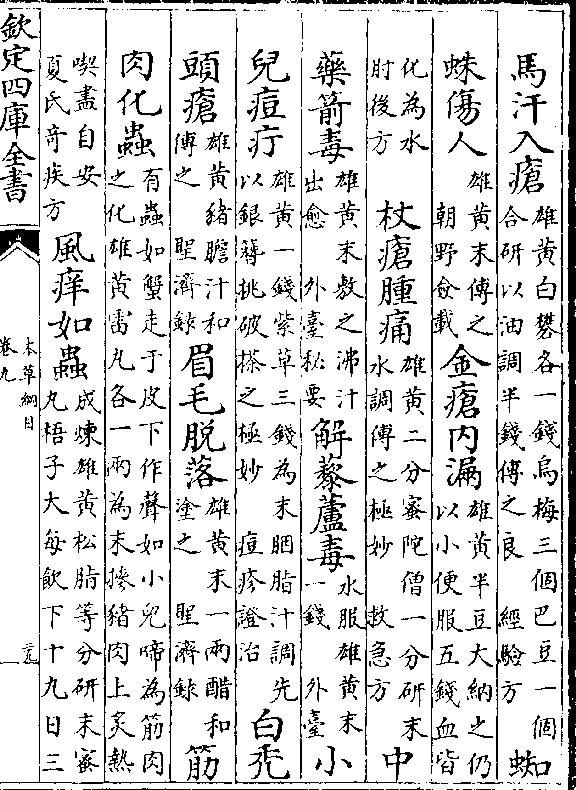 馬汗入瘡雄黃白礬各一錢烏梅三個巴豆一個合研以油調半錢傅之良 經驗方蜘
蛛傷人雄黃末傅之朝野僉載金瘡内漏雄黃半豆大納之仍以小便服五錢血皆
化為水肘後方杖瘡腫痛雄黃二分蜜陀僧一分研末水調傅之極妙 救急方中
藥箭毒雄黃末敷之沸汁出愈 外臺秘要解藜蘆毒水服雄黃末一錢 外臺小
兒痘疔雄黃一錢紫草三錢為末胭脂汁調先以銀簪挑破搽之極妙 痘疹證治白禿
頭瘡雄黃豬膽汁和傅之 聖濟錄眉毛脱落雄黃末一兩醋和塗之 聖濟錄筋
肉化蟲有蟲如蟹走于皮下作聲如小兒啼為筋肉之化雄黃雷丸各一兩為末摻豬肉上炙熱
喫盡自安夏氏奇疾方風痒如蟲成煉雄黃松脂等分研末蜜丸梧子大每飲下十九日三
欽定四庫全書
本草綱目
卷九